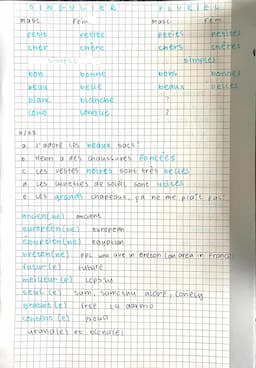 SINGULIER PLURIEL
masc. fem. masc. fem.
petit petite petits petites
cher chère chers chères
simple simples
bon bonne bons bonnes
beau belle beaux belles
blanc blanche ?
long longue ?
a. J'adore les beaux sacs!
b. Henri a des chaussures foncées
c. Les vestes noires sont très belles
d. Les lunettes de soleil sont utiles
e. Les grands chapeaux, ça ne me plaît pas.
ancien(ne) ancient
européen(ne) european
égyptien(ne) egyptian
breton(ne) ppl who live in Breton (an area in France)
futur(e) future
meilleur(e)
seul(e) alone, lonely
gratuit(e) free
content(e)